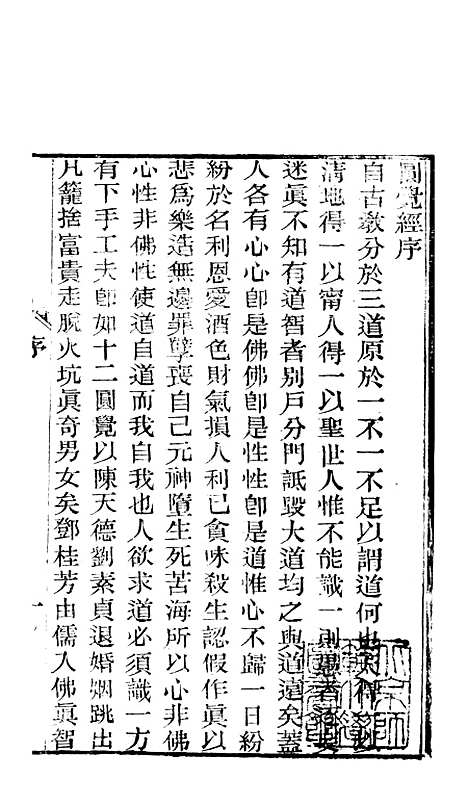 圓覺經序
自古教分於三道原於一不一不足以謂道何也天得一以
清地得一以甯人得一以聖世人惟不能識一則愚者
迷眞不知有道智者別戶分門詆毀大道均之與道遠矣蓋
人各有心心卽是佛佛卽是性性卽是道惟心不歸一日紛
紛於名利恩愛酒色財氣損人利已貪味殺生認假作眞以
悲爲樂造無邊罪孽喪自己元神墮生死苦海所以心非佛
心性非佛性使道自道而我自我也人欲求道必須識一方
有下手工夫卽如十二圓覺以陳天德劉素貞退婚姻跳出
凡籠捨富貴走脫火坑眞奇男女矣鄧桂芳由儒入佛眞智
序
一